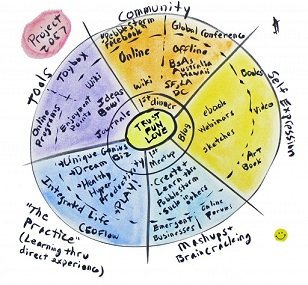 Project
2067
Community
#pebblestorm
Facebook
Online
Wiki
Global Conference
Offline
BBQs
Australia
Hawaii
SF, LA
DC
1st dinner
Tools
Toybox
Wiki
Online
Programs
Enjoyment
Points
Ideas
Book
Journals
TRUST
FUN
LOVE
Self Expression
Books
Video
ebook
Webinars
sketches
Art
Book
Blog
Unique Genius
Dream Biz
Healthy
Hyper
Productivity
PLAY!
Integrated Life
CEOFlow
"The
Practice"
(Learning thru
direct experience)
Meetup
Create +
Learn thru
Pebblestorm
Online
Forums
Emergent
Businesses
Mashups +
Braincracking